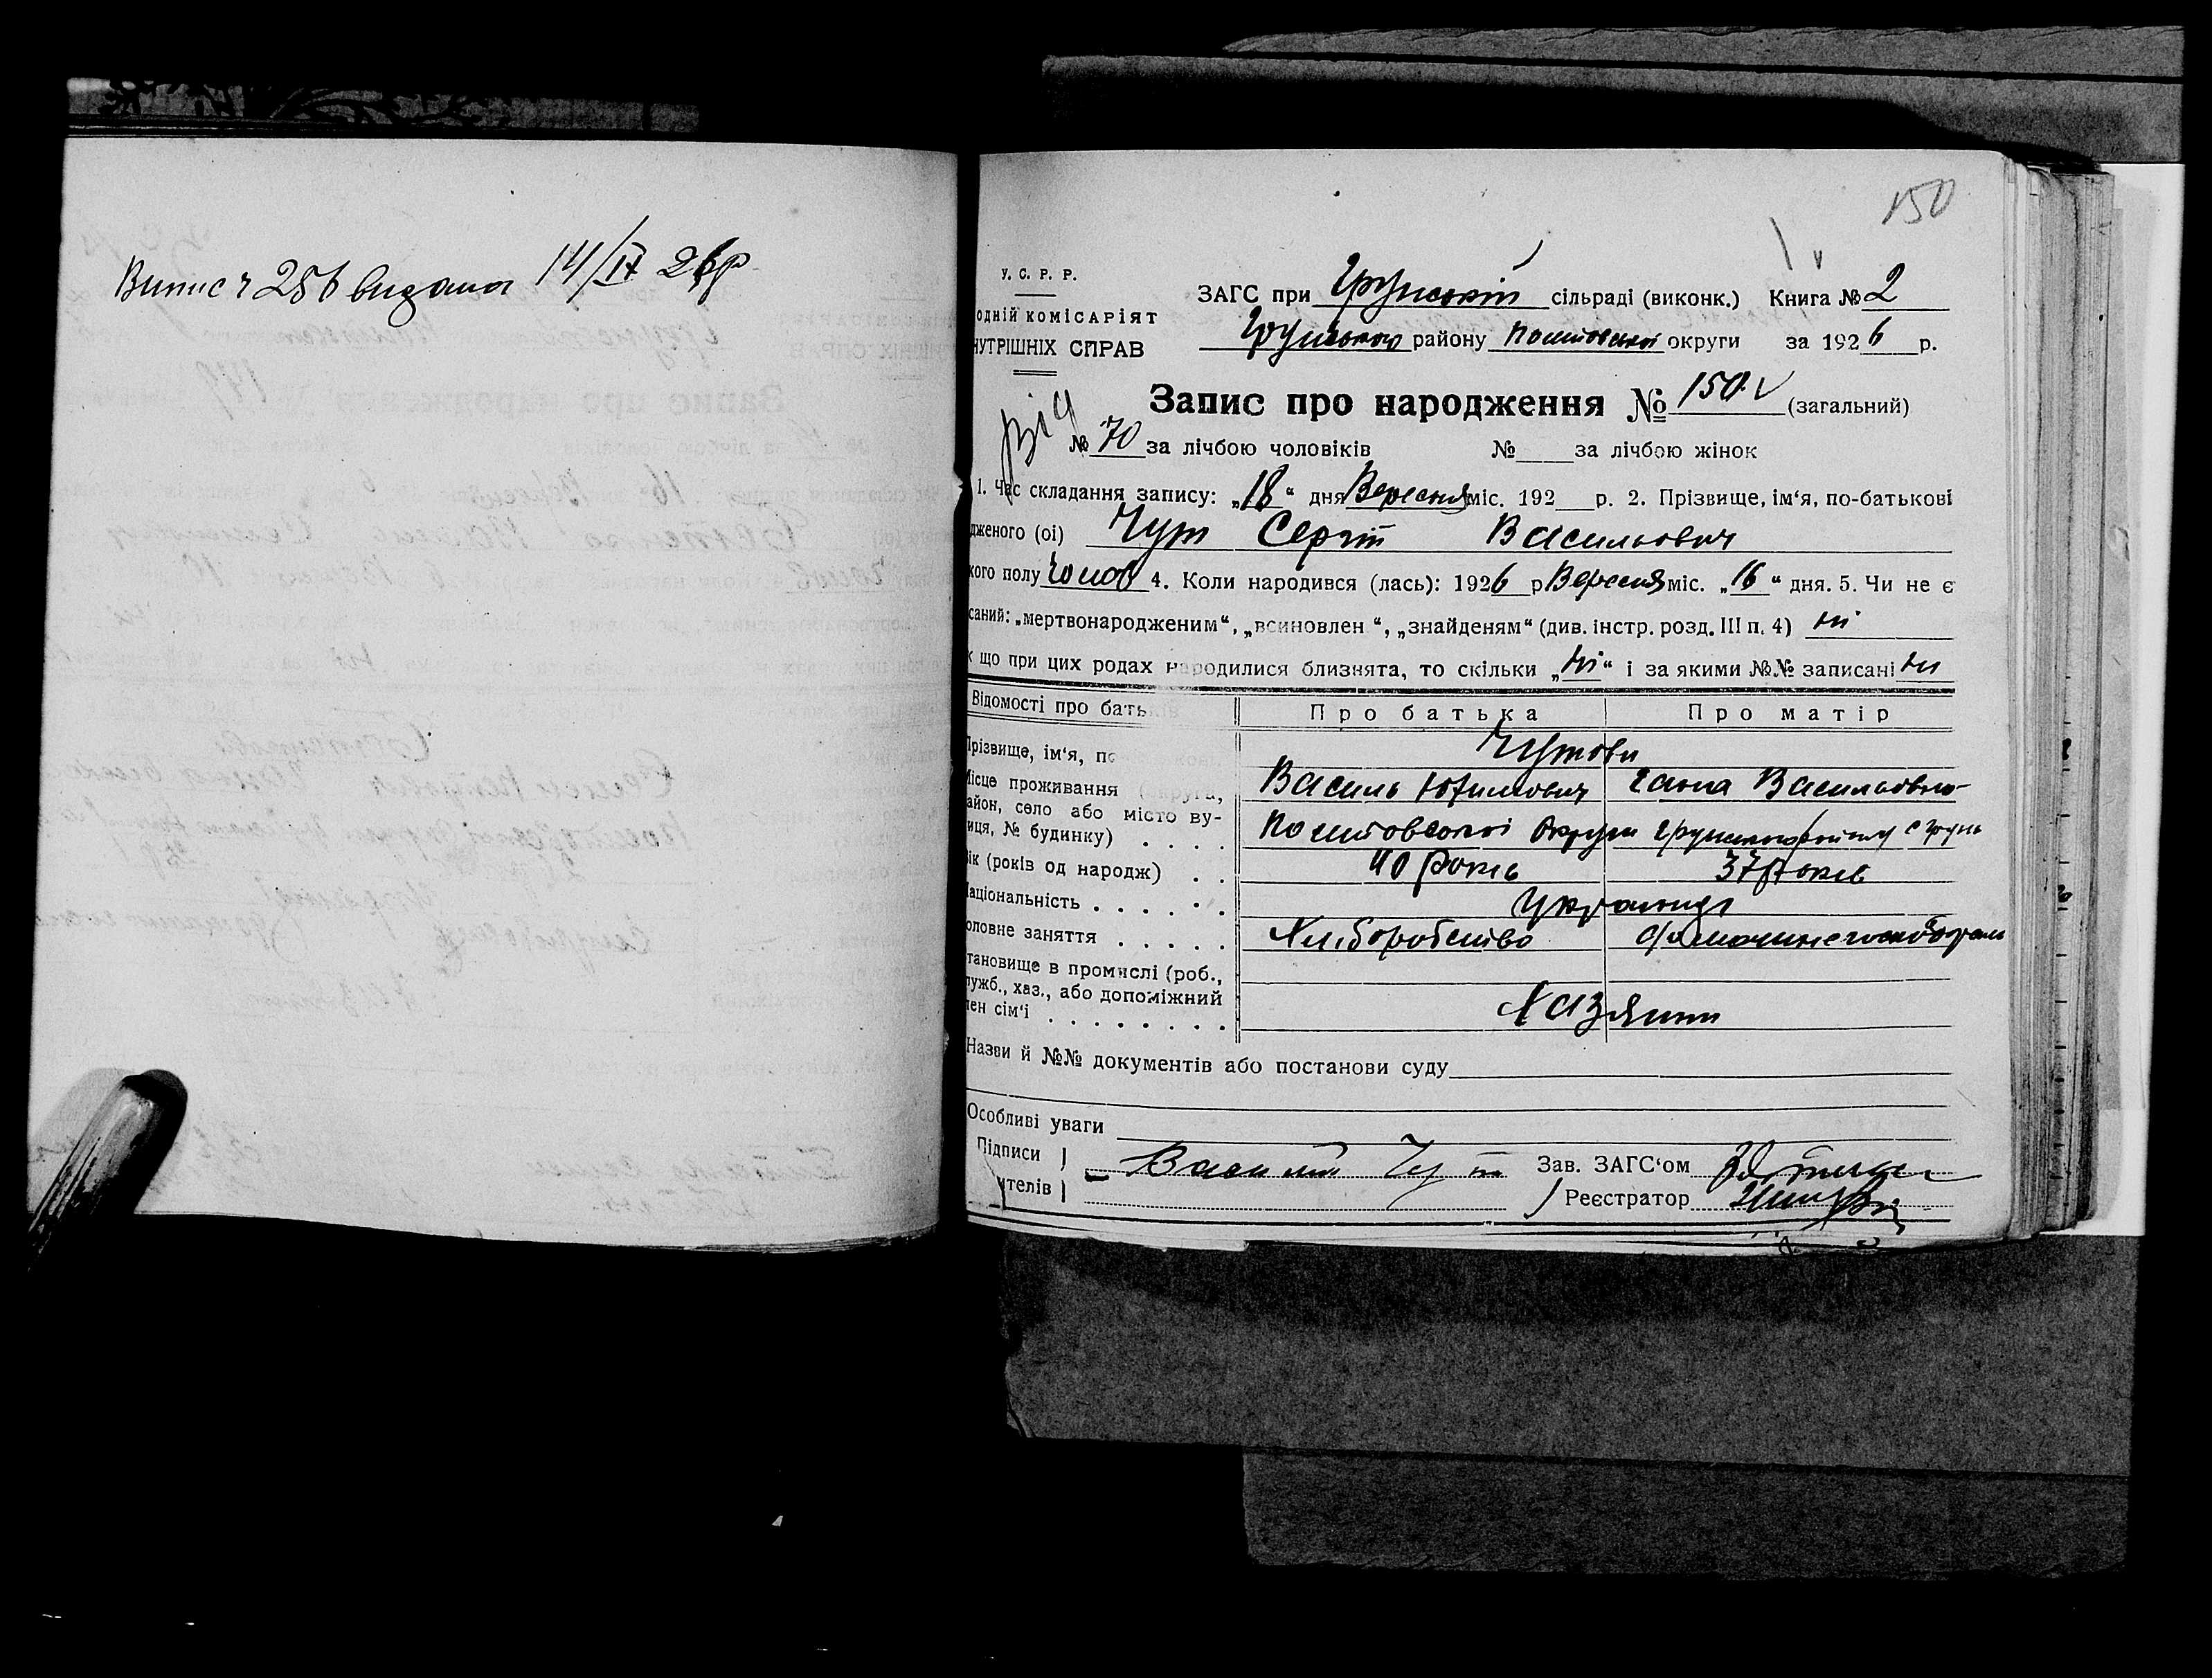 Випис ч 256 видана 14/IX 26р
150
У. С. Р. Р.
одній комісаріят
нутрішніх справ
ЗАГС при Грунській сільраді (виконк.) Книга № 2
Грунського району Полтавської округи за 1926 р.
Запис про народження № 150 (загальний)
№ 70 за лічбою чоловіків № за лічбою жінок
1. Час складання запису: „18“ дня Вересня міс. 192 р. 2. Прізвище, ім‘я, по-батькові
дженого (ої) Чут Сергій Васильович
кого полу чолов 4. Коли народився (лась): 1926 р Вересня міс. „16“ дня. 5. Чи не є
саний: „мертвонародженим“, „всиновлен “, „знайденям“ (див. інстр. розд. III п. 4) ні
к що при цих родах народилися близнята, то скільки „ні“ і за якими №№ записані ні
Відомості про батьків Про батька Про матір
Прізвище, ім‘я, по Чутови
Василь Юхимович Ганна Васильовна
Місце проживання (округа,
айон, село або місто ву-
иця, № будинку) . . . . Полтавської Округи Грунського району с Грунь
ік (років од народж) . . 40 років 37 років
аціональність . . . . . . Українці
оловне заняття . . . . . Хліборобство домашнє господарст
тановище в промислі (роб.,
лужб., хаз., або допоміжний
лен сім‘ї . . . . . . . . Хазяини
Назви й №№ документів або постанови суду
Особливі уваги
Підписи Василий Чут Зав. ЗАГС‘ом
ителів Реєстратор